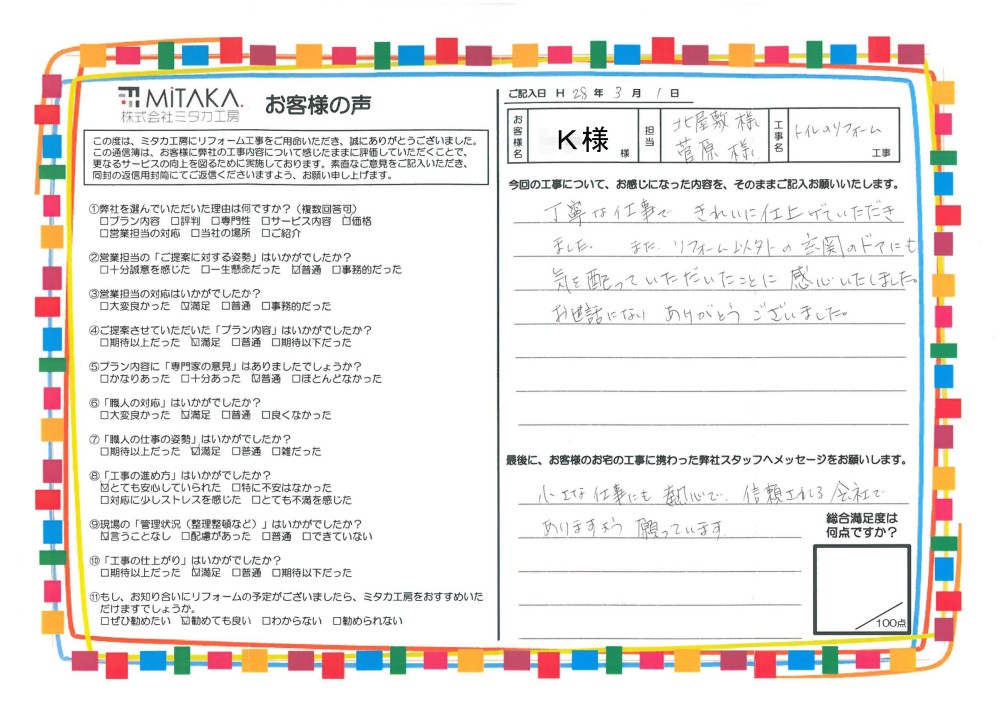 MiTAKA.
株式会社ミタカ工房
お客様の声
この度は、ミタカ工房にリフォーム工事をご用命いただき、誠にありがとうございました。
この通信簿は、お客様に弊社の工事内容について感じたままに評価していただくことで、
更なるサービスの向上を図るために実施しております。素直なご意見をご記入いただき、
同封の返信用封筒にてご返信くださいますよう、お願い申し上げます。
①弊社を選んでいただいた理由は何ですか？（複数回答可）
□プラン内容 □評判 □専門性 □サービス内容 ☑価格
□営業担当の対応 □当社の場所 □ご紹介
②営業担当の「ご提案に対する姿勢」はいかがでしたか？
□十分誠意を感じた □一生懸命だった ☑普通 □事務的だった
③営業担当の対応はいかがでしたか？
□大変良かった ☑満足 □普通 □事務的だった
④ご提案させていただいた「プラン内容」はいかがでしたか？
□期待以上だった ☑満足 □普通 □期待以下だった
⑤プラン内容に「専門家の意見」はありましたでしょうか？
□かなりあった □十分あった ☑普通 □ほとんどなかった
⑥「職人の対応」はいかがでしたか？
□大変良かった ☑満足 □普通 □良くなかった
⑦「職人の仕事の姿勢」はいかがでしたか？
□期待以上だった ☑満足 □普通 □雑だった
⑧「工事の進め方」はいかがでしたか？
☑とても安心していられた □特に不安はなかった
□対応に少しストレスを感じた □とても不満を感じた
⑨現場の「管理状況（整理整頓など）」はいかがでしたか？
☑言うことなし □配慮があった □普通 □できていない
⑩「工事の仕上がり」はいかがでしたか？
□期待以上だった ☑満足 □普通 □期待以下だった
⑪もし、お知り合いにリフォームの予定がございましたら、ミタカ工房をおすすめいた
だけますでしょうか。
□ぜひ勧めたい ☑勧めても良い □わからない □勧められない
ご記入日 H 28 年 3 月 1 日
お客様名 K様 様 担当 北屋敷 様 菅原 様 工事名 トイレのリフォーム 工事
今回の工事について、お感じになった内容を、そのままご記入お願いいたします。
丁寧な仕事で きれいに仕上げていただき
ました。 また、リフォーム以外の玄関のドアにも
気を配っていただいたことに 感心いたしました。
お世話になり ありがとうございました。
最後に、お客様のお宅の工事に携わった弊社スタッフへメッセージをお願いします。
小さな仕事にも 熱心で、信頼される会社で
ありますよう 願っています
総合満足度は
何点ですか？
／100点